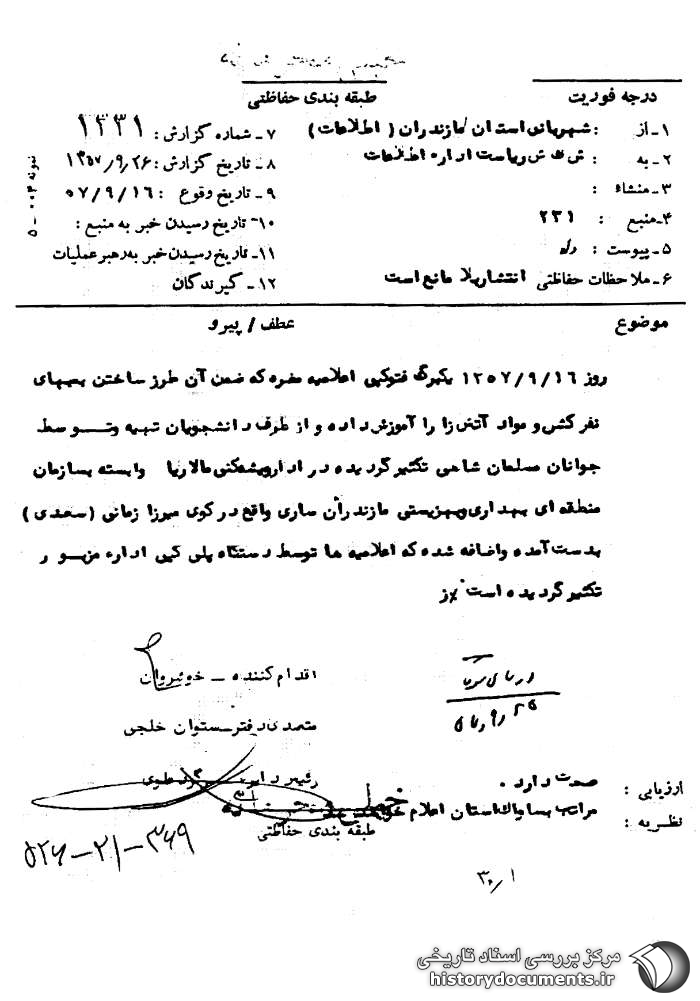 درجه فوریت
طبقه بندی حفاظتی
۱ـ از : شهربانی استان مازندران ( اطلاعات )
۷ـ شماره گزارش : ۱۳۳۱
۲ـ به :
ریاست اداره اطلاعات
۸ـ تاریخ گزارش : ۱۳۵۷/۹/۲۶
۳ـ منشاء :
۹ـ تاریخ وقوع : ۵۷/۹/۱۶
۴ـ منبع : ۲۳۱
۱۰ـ تاریخ رسیدن خبر به منبع :
۵ـ پیوست : دارد
۱۱ـ تاریخ رسیدن خبر به رهبر عملیات
۶ـ ملاحظات حفاظتی انتشار بلا مانع است
۱۲ـ گیرندگان
نمونه ۰۰۴ ـ ۵
موضوع
عطف / پیرو
روز ۱۳۵۷/۹/۱۶ یکبرگ فتوکپی اعلامیه مضره که ضمن آن طرز ساختن بمبهای
نفر کش و مواد آتش زا را آموزش داده و از طرف دانشجویان تهیه وتوسط
جوانان مسلمان شاهی تکثیر گردیده در اداره ریشه کنی مالاریا وابسته بسازمان
منطقه ای بهداری وبهزیستی مازندران ساری واقع در کوی میرزا زمانی ( سعدی )
بدست آمده واضافه شده که اعلامیه ها توسط دستگاه پلی کپی اداره مزبور
تکثیر گردیده است
اقدام کننده ـ خوشروان
متصدی دفتر ـ ستوان خلجی
ارزیابی : صحت دارد .
نظریه : مراتب بساواک استان اعلام
طبقه بندی حفاظتی
۵۲۶-۲۱-۳۶۹
۳۰/۱
مرکز بررسی اسناد تاریخی
historydocuments.ir